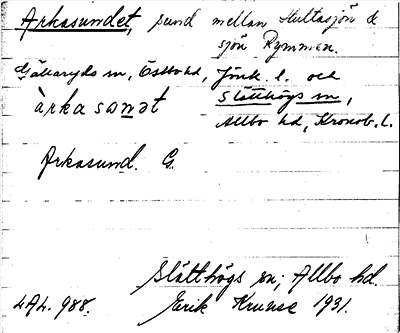 Arkasundet, sund mellan Huttasjön &
sjön Rymmen.
Gällaryds sn, Östbo hd, Jönk. l. och
Slätthögs sn,
àrka sɵnət
Allbo hd, Kronob. l.
Arkasund. G.
Slätthögs sn; Allbo hd.
LAL. 988.
Erik Kruuse 1931.